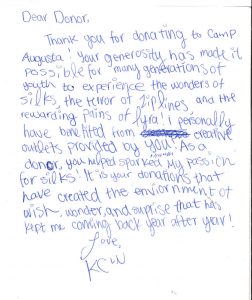 Dear Donor,
Thank you for donating to Camp
Augusta! Your generosity has made it
possible for many generations of
youth to experience the wonders of
silks, the terror of ziplines, and the
rewarding pains of lyra! I personally
have benefited from creative
outlets provided by you! As a
donor, you helped sparked my passion
for silks! It is your donations that
have created the enviornment of
wish, wonder, and surprise that has
kept me coming back year after year!
Love,
KCW